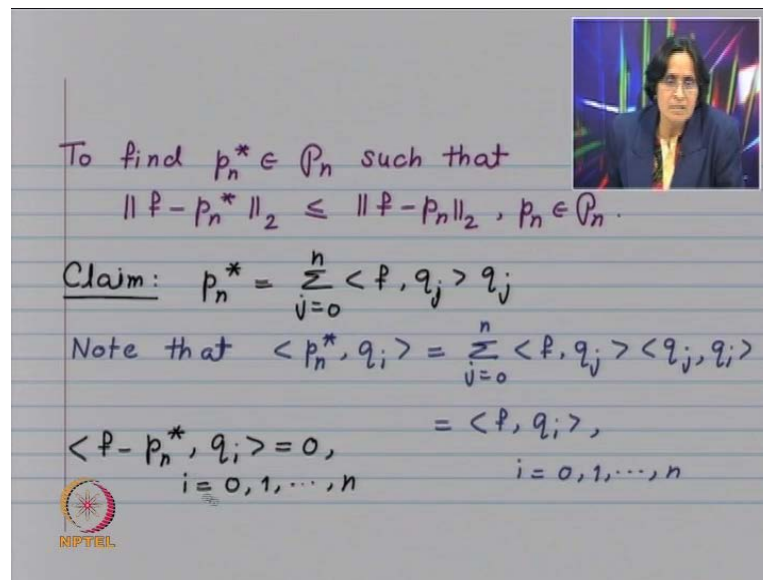 To find pₙ* ∈ 𝒫ₙ such that
‖ f - pₙ* ‖₂ ≤ ‖ f - pₙ‖₂ , pₙ ∈ 𝒫ₙ .
Claim: pₙ* = ∑ⱼ₌₀ⁿ < f , qⱼ > qⱼ
Note that < pₙ*, qᵢ > = ∑ⱼ₌₀ⁿ < f , qⱼ > < qⱼ, qᵢ >
= < f, qᵢ > ,
i = 0, 1, ..., n
< f - pₙ*, qᵢ > = 0,
i = 0, 1, ..., n
NPTEL